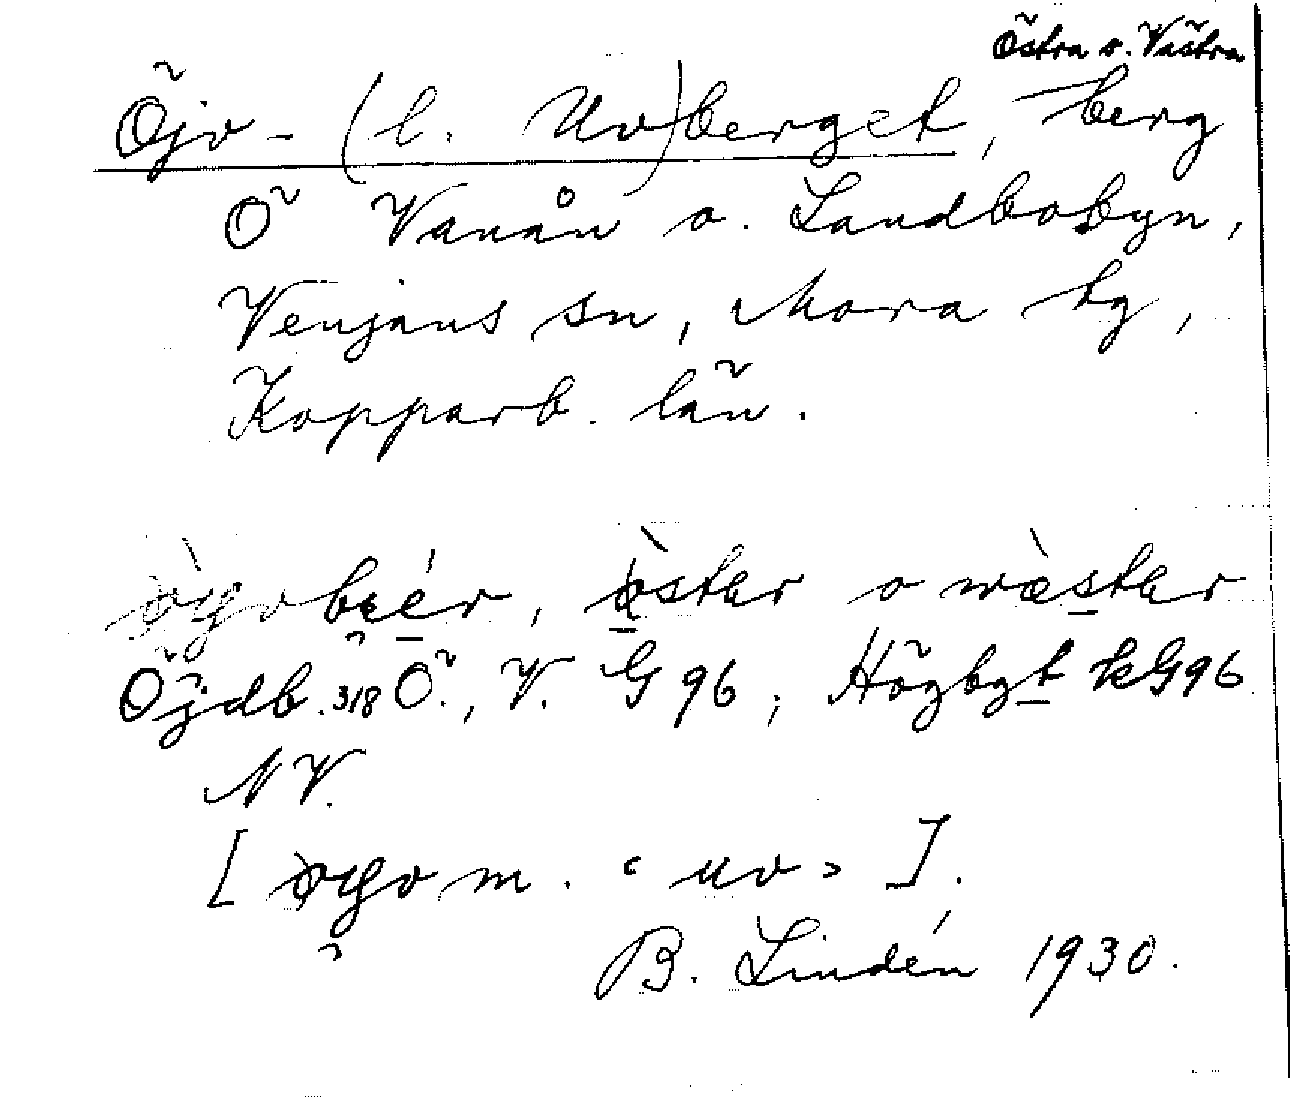 Östra o. Västra
Öjv- (l. Uv)berget, berg
Ö Vanån o. Landbobyn,
Venjans sn, Mora tg,
Kopparb. län.
öster o wæster
Öjdb. 318 Ö., V. G 96; Högbgt kG96
NV.
[ m. "uv" ].
B. Lindén 1930.